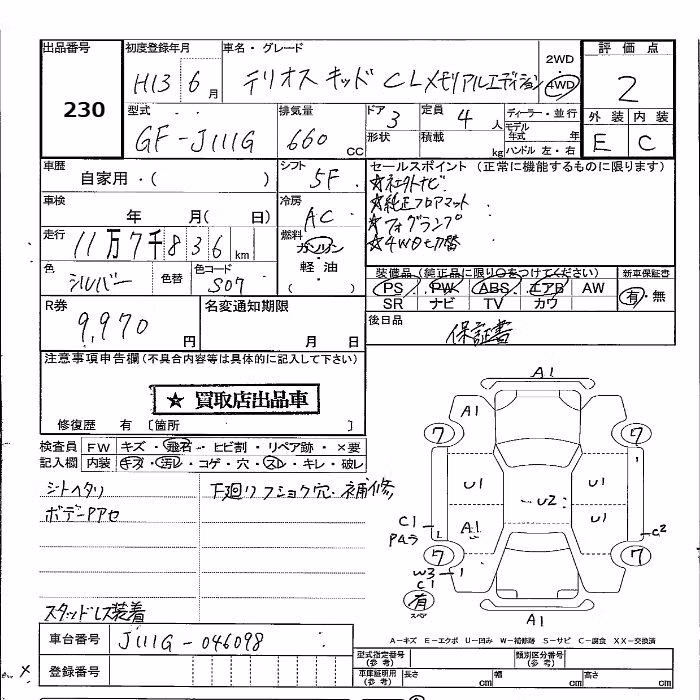 出品番号 初度登録年月 車名・グレード 2WD 評価点
230 H13 6月 テリオスキッド CLメモリアルエディション 4WD 2
型式 排気量 ドア 3 定員 4人 ディーラー・並行 外装 内装
GF-J111G 660cc 形状 積載 kg モデル年式 年 ハンドル 左・右 E C
車歴 自家用・( ) シフト 5F セールスポイント (正常に機能するものに限ります)
☆社外ナビ
車検 年 月( 日) 冷房 AC ☆純正フロアマット
☆フォグランプ
走行 11万7千836km 燃料 ガソリン 軽・油 ( ) ☆4WD切替
色 シルバー 色替 色コード S07 装備品(純正品に限り○をつけてください) 新車保証書
PS PW ABS エアB AW 有・無
SR ナビ TV カワ
R券 9,970円 名変通知期限 月 日 後日品 保証書
注意事項申告欄(不具合内容等は具体的に記入して下さい)
☆ 買取店出品車
修復歴 有〔箇所 〕
検査員 FW キズ・飛石・ヒビ割・リペア跡・×要
記入欄 内装 キズ・汚レ・コゲ・穴・スレ・キレ・破レ
シートヘタリ 下廻リフショク穴・補修
ボデーPアセ
スタッドレス装着
A1
A1
7 7
U1 U2 U1
C1 A1 U1 C2
PAラ
7 7
W3 1
C1
有
スペア
A1
A-キズ E-エクボ U-凹み W-補修跡 S-サビ C-腐食 XX-交換済
車台番号 J111G-046098 型式指定番号(参考) 類別区分番号(参考)
登録番号 車庫証明用(参考) 長さ cm 幅 cm 高さ cm